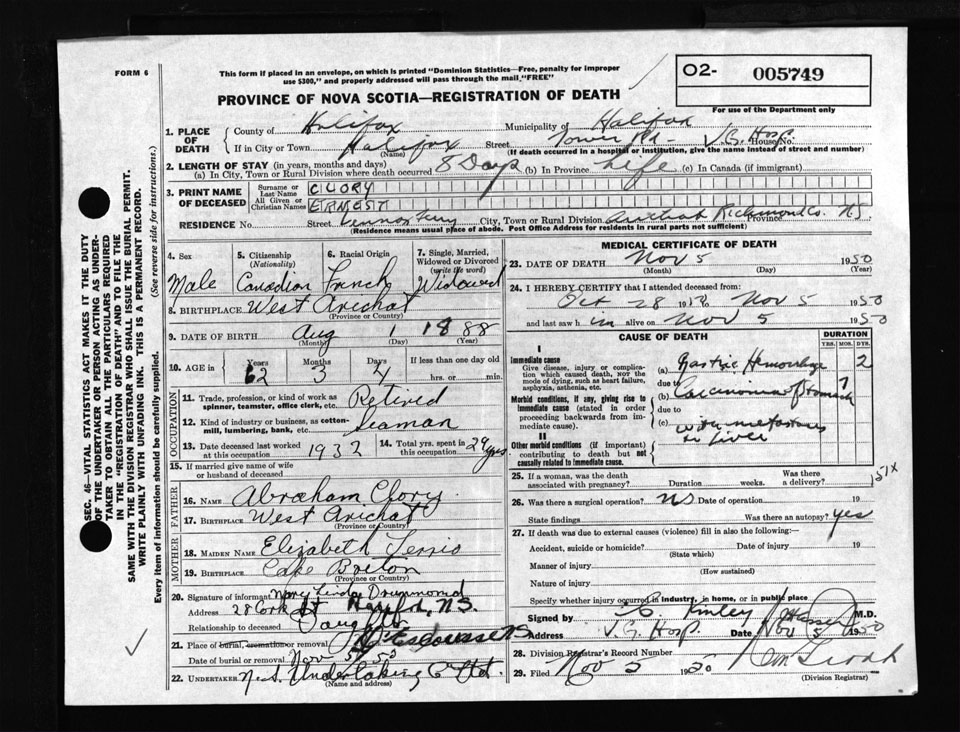 FORM 6
This form if placed in an envelope, on which is printed "Dominion Statistics—Free, penalty for improper
use $300," and properly addressed will pass through the mail "FREE"
O2- 005749
PROVINCE OF NOVA SCOTIA—REGISTRATION OF DEATH
For use of the Department only
1. PLACE OF DEATH
County of Halifax Municipality of Halifax
If in City or Town Halifax Street Tower Rd. V.G. Hosp. House No.
(Name) (If death occurred in a hospital or institution, give the name instead of street and number)
2. LENGTH OF STAY (in years, months and days)
(a) In City, Town or Rural Division where death occurred 8 Days (b) In Province Life (c) In Canada (if immigrant)
3. PRINT NAME OF DECEASED
Surname or Last Name CLORY
All Given or Christian Names ERNEST
RESIDENCE No. Street Lennox Ferry City, Town or Rural Division Arichat Richmond Co. Province NS
(Residence means usual place of abode. Post Office Address for residents in rural parts not sufficient)
4. Sex Male
5. Citizenship (Nationality) Canadian
6. Racial Origin French
7. Single, Married, Widowed or Divorced (write the word) Widowed
8. BIRTHPLACE West Arichat
(Province or Country)
9. DATE OF BIRTH Aug 1 1888
(Month) (Day) (Year)
10. AGE in Years 62 Months 3 Days 4 If less than one day old hrs. or min.
OCCUPATION
11. Trade, profession, or kind of work as spinner, teamster, office clerk, etc. Retired
12. Kind of industry or business, as cotton-mill, lumbering, bank, etc. Seaman
13. Date deceased last worked at this occupation 1932
14. Total yrs. spent in this occupation 29 yrs.
15. If married give name of wife or husband of deceased
FATHER
16. NAME Abraham Clory
17. BIRTHPLACE West Arichat
(Province or Country)
MOTHER
18. MAIDEN NAME Elizabeth Terrio
19. BIRTHPLACE Cape Breton
(Province or Country)
20. Signature of informant Mary Drummond
Address 28 Cork St Halifax, N.S.
Relationship to deceased Daughter
21. Place of burial, cremation or removal D'Escousse NS
Date of burial or removal Nov 5 50
22. UNDERTAKER N.S. Undertaking Co Ltd.
(Name and address)
MEDICAL CERTIFICATE OF DEATH
23. DATE OF DEATH Nov 5 1950
(Month) (Day) (Year)
24. I HEREBY CERTIFY that I attended deceased from:
Oct 28 1950 to Nov 5 1950
and last saw him alive on Nov 5 1950
CAUSE OF DEATH
DURATION
YRS. MOS. DYS.
I
Immediate cause
Give disease, injury or complication which caused death, NOT the mode of dying, such as heart failure, asphyxia, asthenia, etc.
(a) Gastric Hemorrhage 2
due to
Morbid conditions, if any, giving rise to immediate cause (stated in order proceeding backwards from immediate cause)
(b) Carcinoma of Stomach 7
due to
(c) with metastases to liver
II
Other morbid conditions (if important) contributing to death but not causally related to immediate cause.
151X
25. If a woman, was the death associated with pregnancy? Duration weeks. Was there a delivery?
26. Was there a surgical operation? no Date of operation 19
State findings Was there an autopsy? yes
27. If death was due to external causes (violence) fill in also the following:—
Accident, suicide or homicide? Date of injury 19
(State which)
Manner of injury
(How sustained)
Nature of injury
Specify whether injury occurred in industry, in home, or in public place
Signed by Kinley M.D.
Address V.G. Hosp. Date Nov 5 1950
28. Division Registrar's Record Number
29. Filed Nov 5 1950
(Division Registrar)
SEC. 46—VITAL STATISTICS ACT MAKES IT THE DUTY
OF THE UNDERTAKER OR PERSON ACTING AS UNDER-
TAKER TO OBTAIN ALL THE PARTICULARS REQUIRED
IN THE "REGISTRATION OF DEATH" AND TO FILE THE
SAME WITH THE DIVISION REGISTRAR WHO SHALL ISSUE THE BURIAL PERMIT.
WRITE PLAINLY WITH UNFADING INK. THIS IS A PERMANENT RECORD.
Every item of information should be carefully supplied. (See reverse side for instructions.)